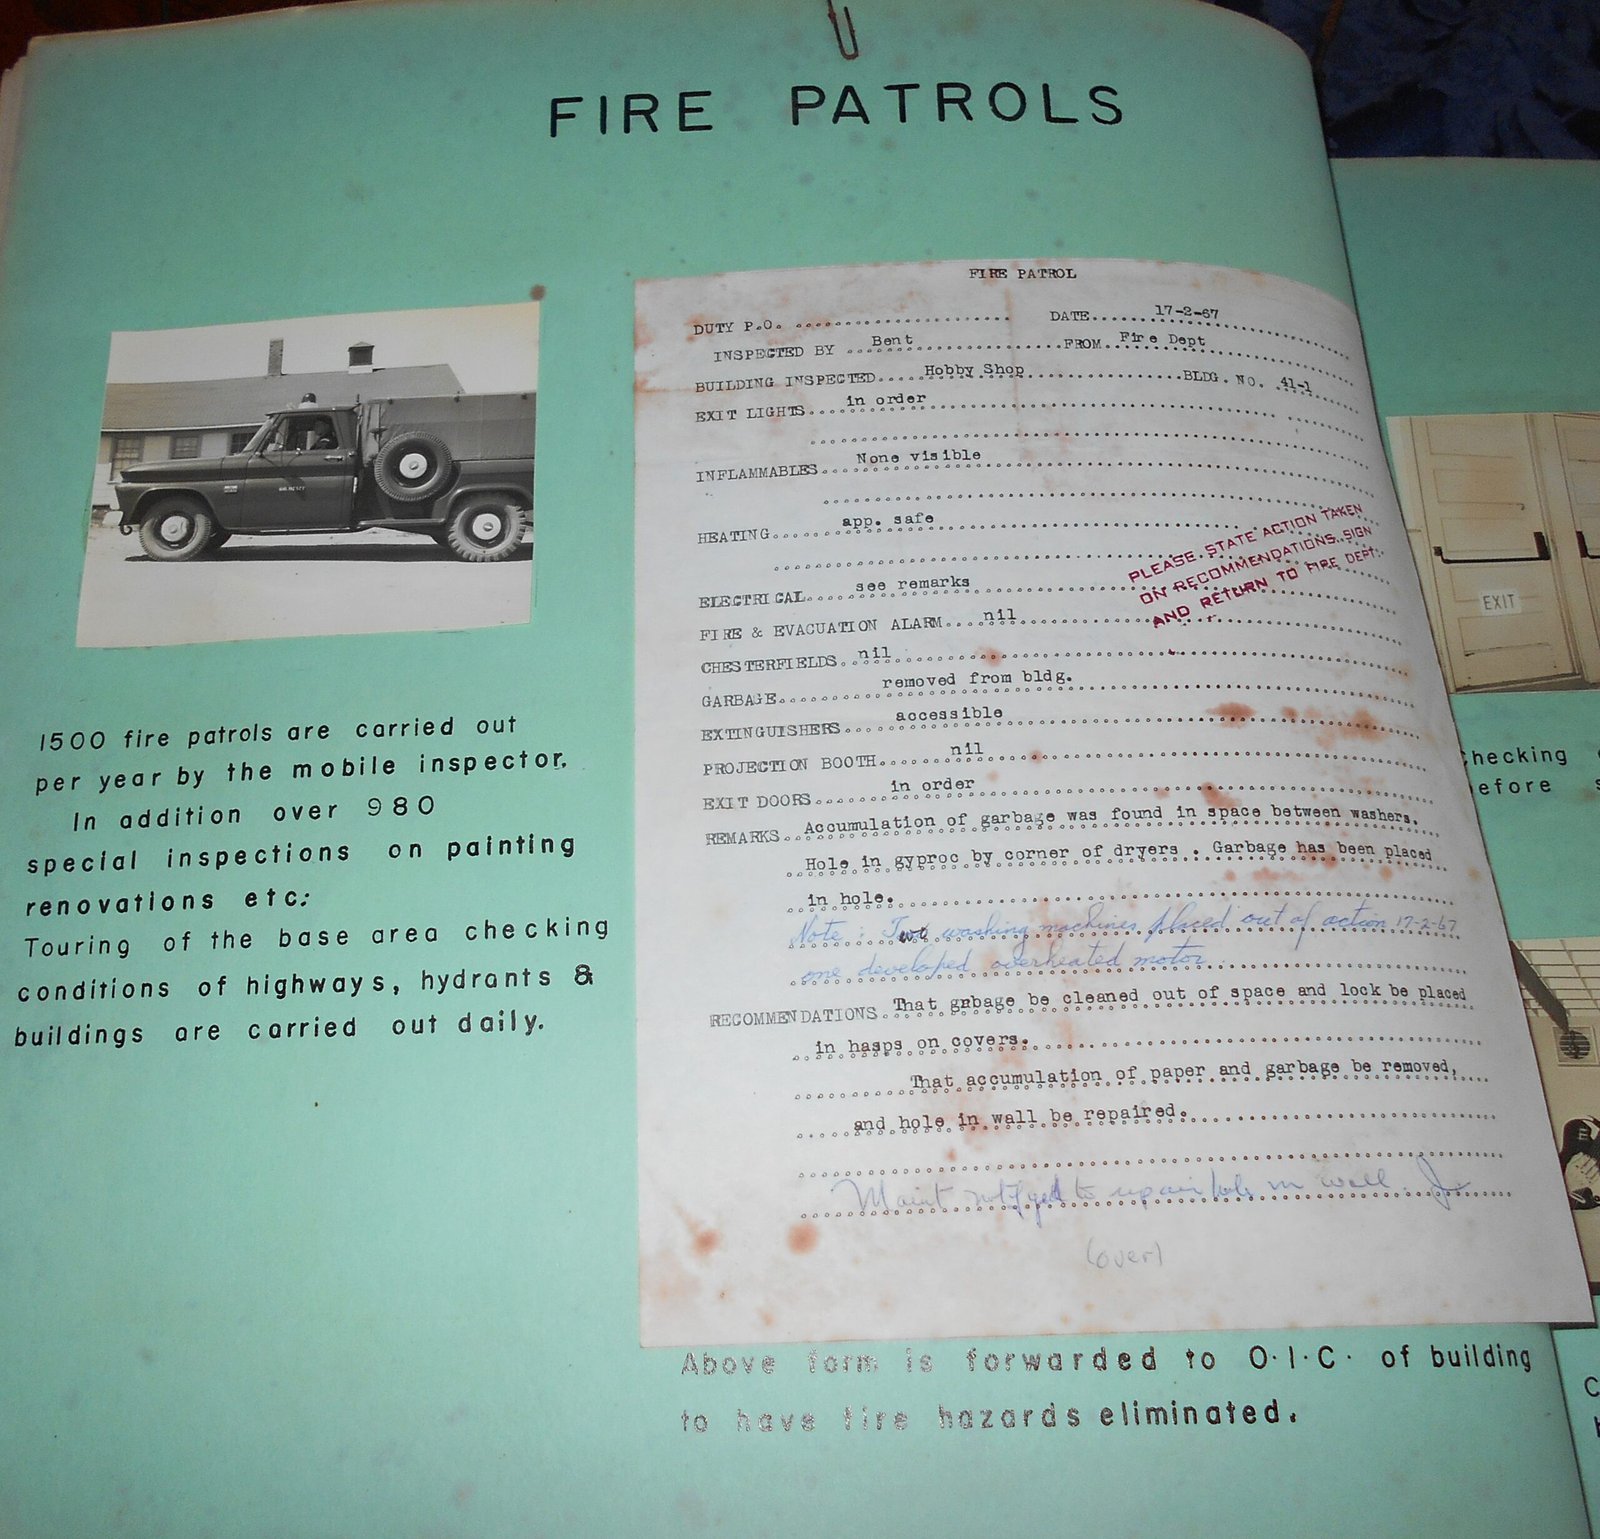 FIRE PATROLS
1500 fire patrols are carried out
per year by the mobile inspector.
In addition over 980
special inspections on painting
renovations etc:
Touring of the base area checking
conditions of highways, hydrants &
buildings are carried out daily.
FIRE PATROL
DUTY P.O. DATE 17-2-67
INSPECTED BY Bent FROM Fire Dept
BUILDING INSPECTED Hobby Shop BLDG. NO. 41-1
EXIT LIGHTS in order
INFLAMMABLES None visible
HEATING app. safe
PLEASE STATE ACTION TAKEN
ON RECOMMENDATIONS SIGN
AND RETURN TO FIRE DEPT.
ELECTRICAL see remarks
FIRE & EVACUATION ALARM nil
CHESTERFIELDS nil
GARBAGE removed from bldg.
EXTINGUISHERS accessible
PROJECTION BOOTH nil
EXIT DOORS in order
REMARKS Accumulation of garbage was found in space between washers.
Hole in gyproc by corner of dryers . Garbage has been placed
in hole.
Note : Two washing machines placed out of action 17-2-67
one developed overheated motor.
RECOMMENDATIONS That grbage be cleaned out of space and lock be placed
in hasps on covers.
That accumulation of paper and garbage be removed,
and hole in wall be repaired.
Maint notifyed to repair hole in wall.
(over)
Above form is forwarded to O.I.C. of building
to have fire hazards eliminated.
EXIT
Checking
before